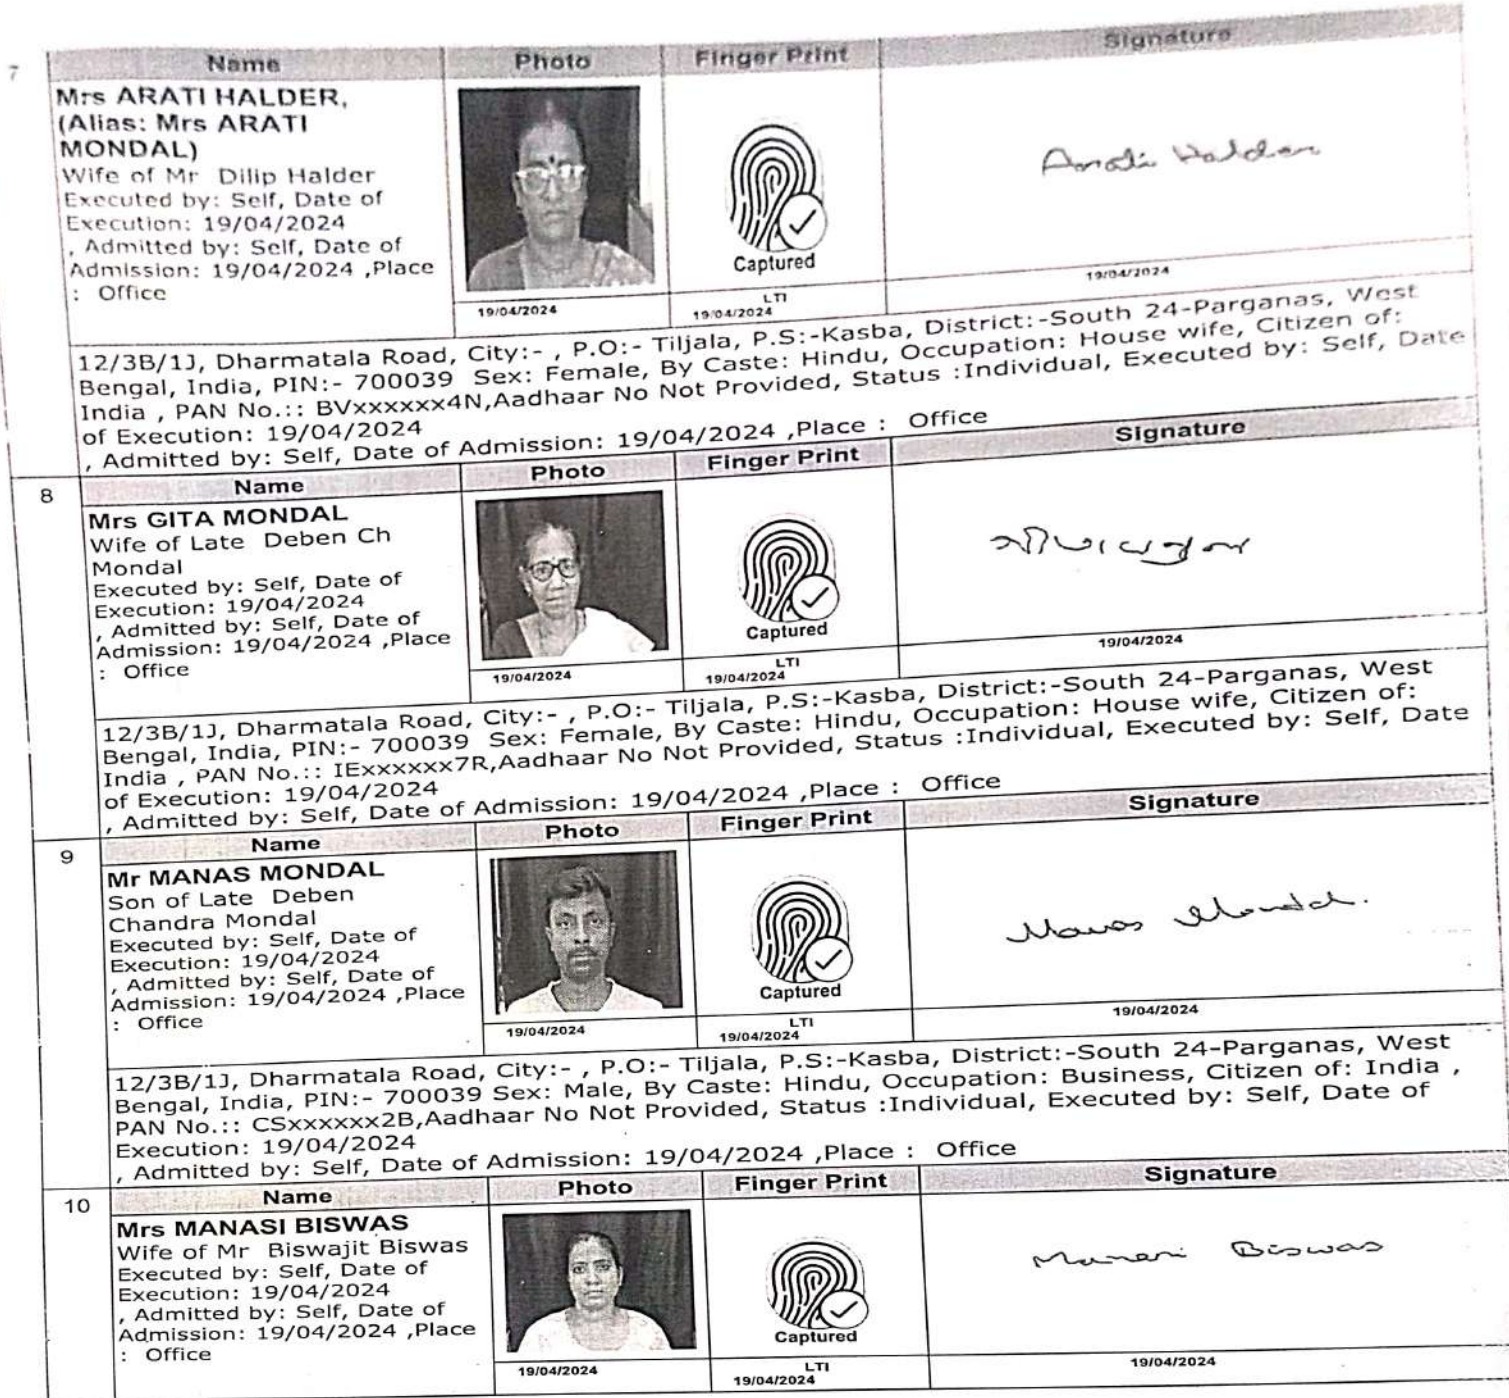 7
Name Photo Finger Print Signature
Mrs ARATI HALDER,
(Alias: Mrs ARATI
MONDAL)
Wife of Mr Dilip Halder
Executed by: Self, Date of
Execution: 19/04/2024
, Admitted by: Self, Date of
Admission: 19/04/2024 ,Place
: Office
Captured
Arati Halder
19/04/2024
LTI
19/04/2024
19/04/2024
12/3B/1J, Dharmatala Road, City:- , P.O:- Tiljala, P.S:-Kasba, District:-South 24-Parganas, West
Bengal, India, PIN:- 700039 Sex: Female, By Caste: Hindu, Occupation: House wife, Citizen of:
India , PAN No.:: BVxxxxxx4N,Aadhaar No Not Provided, Status :Individual, Executed by: Self, Date
of Execution: 19/04/2024
, Admitted by: Self, Date of Admission: 19/04/2024 ,Place : Office
8
Name Photo Finger Print Signature
Mrs GITA MONDAL
Wife of Late Deben Ch
Mondal
Executed by: Self, Date of
Execution: 19/04/2024
, Admitted by: Self, Date of
Admission: 19/04/2024 ,Place
: Office
Captured
19/04/2024
LTI
19/04/2024
19/04/2024
12/3B/1J, Dharmatala Road, City:- , P.O:- Tiljala, P.S:-Kasba, District:-South 24-Parganas, West
Bengal, India, PIN:- 700039 Sex: Female, By Caste: Hindu, Occupation: House wife, Citizen of:
India , PAN No.:: IExxxxxx7R,Aadhaar No Not Provided, Status :Individual, Executed by: Self, Date
of Execution: 19/04/2024
, Admitted by: Self, Date of Admission: 19/04/2024 ,Place : Office
9
Name Photo Finger Print Signature
Mr MANAS MONDAL
Son of Late Deben
Chandra Mondal
Executed by: Self, Date of
Execution: 19/04/2024
, Admitted by: Self, Date of
Admission: 19/04/2024 ,Place
: Office
Captured
Manas Mondal.
19/04/2024
LTI
19/04/2024
19/04/2024
12/3B/1J, Dharmatala Road, City:- , P.O:- Tiljala, P.S:-Kasba, District:-South 24-Parganas, West
Bengal, India, PIN:- 700039 Sex: Male, By Caste: Hindu, Occupation: Business, Citizen of: India ,
PAN No.:: CSxxxxxx2B,Aadhaar No Not Provided, Status :Individual, Executed by: Self, Date of
Execution: 19/04/2024
, Admitted by: Self, Date of Admission: 19/04/2024 ,Place : Office
10
Name Photo Finger Print Signature
Mrs MANASI BISWAS
Wife of Mr Biswajit Biswas
Executed by: Self, Date of
Execution: 19/04/2024
, Admitted by: Self, Date of
Admission: 19/04/2024 ,Place
: Office
Captured
Manasi Biswas
19/04/2024
LTI
19/04/2024
19/04/2024